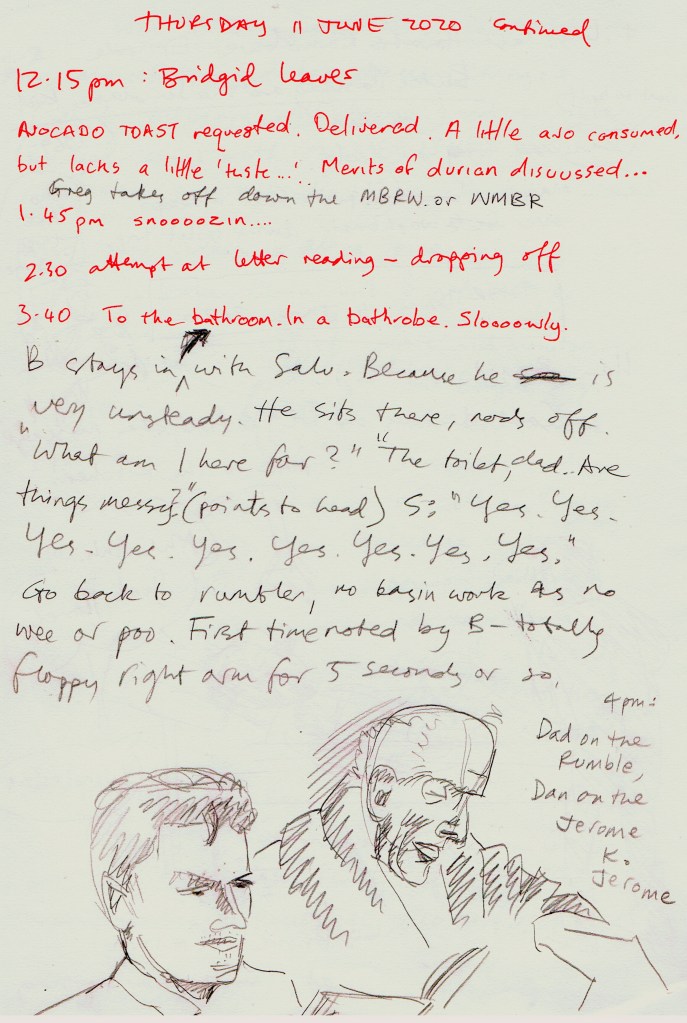 THURSDAY 11 JUNE 2020 continued
12.15pm : Bridgid leaves
AVOCADO TOAST requested. Delivered. A little avo consumed,
but lacks a little 'taste...'. Merits of durian disuussed...
Greg takes off down the MBRW. or WMBR
1.45pm snooozin....
2.30 attempt at letter reading – dropping off
3.40 To the bathroom. In a bathrobe. Sloooowly.
B stays in, with Salv. Because he is
very unsteady. He sits there, nods off.
"What am I here for?" "The toilet, dad. Are
things messy?" (points to head) S: "Yes. Yes.
Yes. Yes. Yes. Yes. Yes. Yes. Yes."
Go back to rumbler, no basin work as no
wee or poo. First time noted by B – totally
floppy right arm for 5 seconds or so.
4pm:
Dad on the
Rumble,
Dan on the
Jerome
K.
Jerome